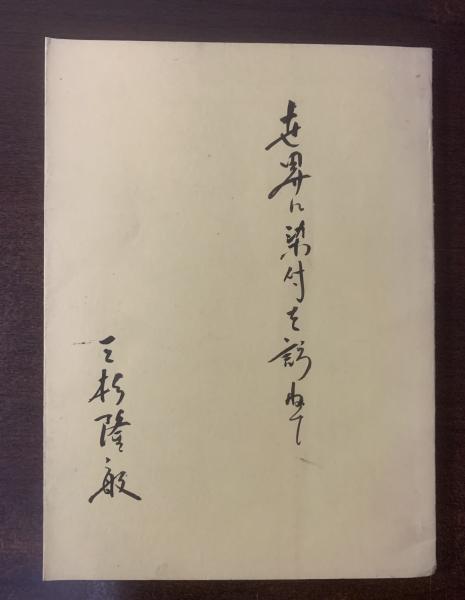 世界に染付を訪ねて
三杉隆敏